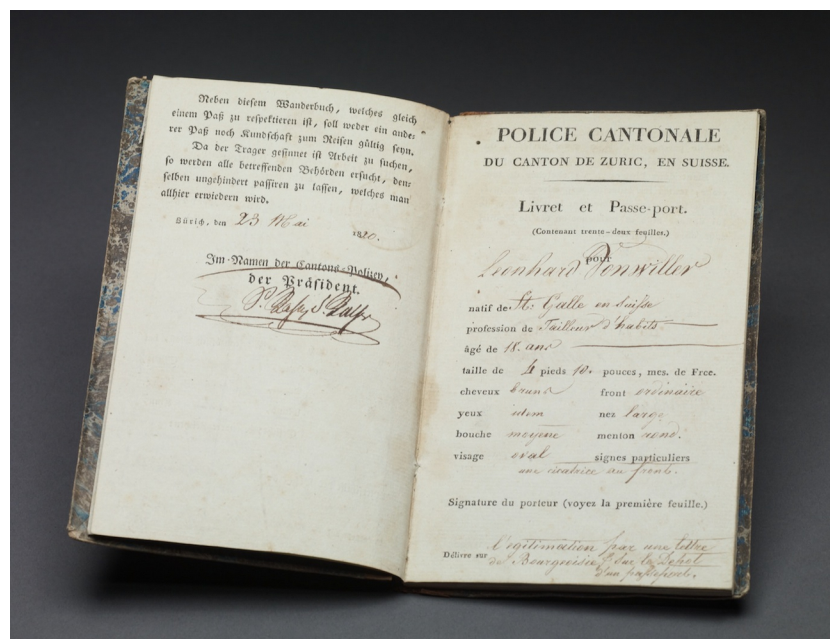 Neben diesem Wanderbuch, welches gleich
einem Paß zu respektieren ist, soll weder ein ande-
rer Paß noch Kundschaft zum Reisen gültig seyn.
Da der Trager gesinnet ist Arbeit zu suchen,
so werden alle betreffenden Behörden ersucht, den-
selben ungehindert passiren zu lassen, welches man
allhier erwiedern wird.
Zürich, den 23 Mai 1820.
Im Namen der Cantons-Polizey,
der Präsident.
POLICE CANTONALE
DU CANTON DE ZURIC, EN SUISSE.
Livret et Passe-port.
(Contenant trente-deux feuilles.)
pour
Leonhard Tonwiller
natif de St. Galle en Suisse
profession de Tailleur d'habits
âgé de 18. ans
taille de 4 pieds 10. pouces, mes. de Frce.
cheveux bruns front ordinaire
yeux idem nez large
bouche moyene menton rond.
visage oval signes particuliers
une cicatrice au fronte.
Signature du porteur (voyez la première feuille.)
Délivré sur légitimation par une lettre
de Bourgeoisie, sur le Depot
d'un passeport.